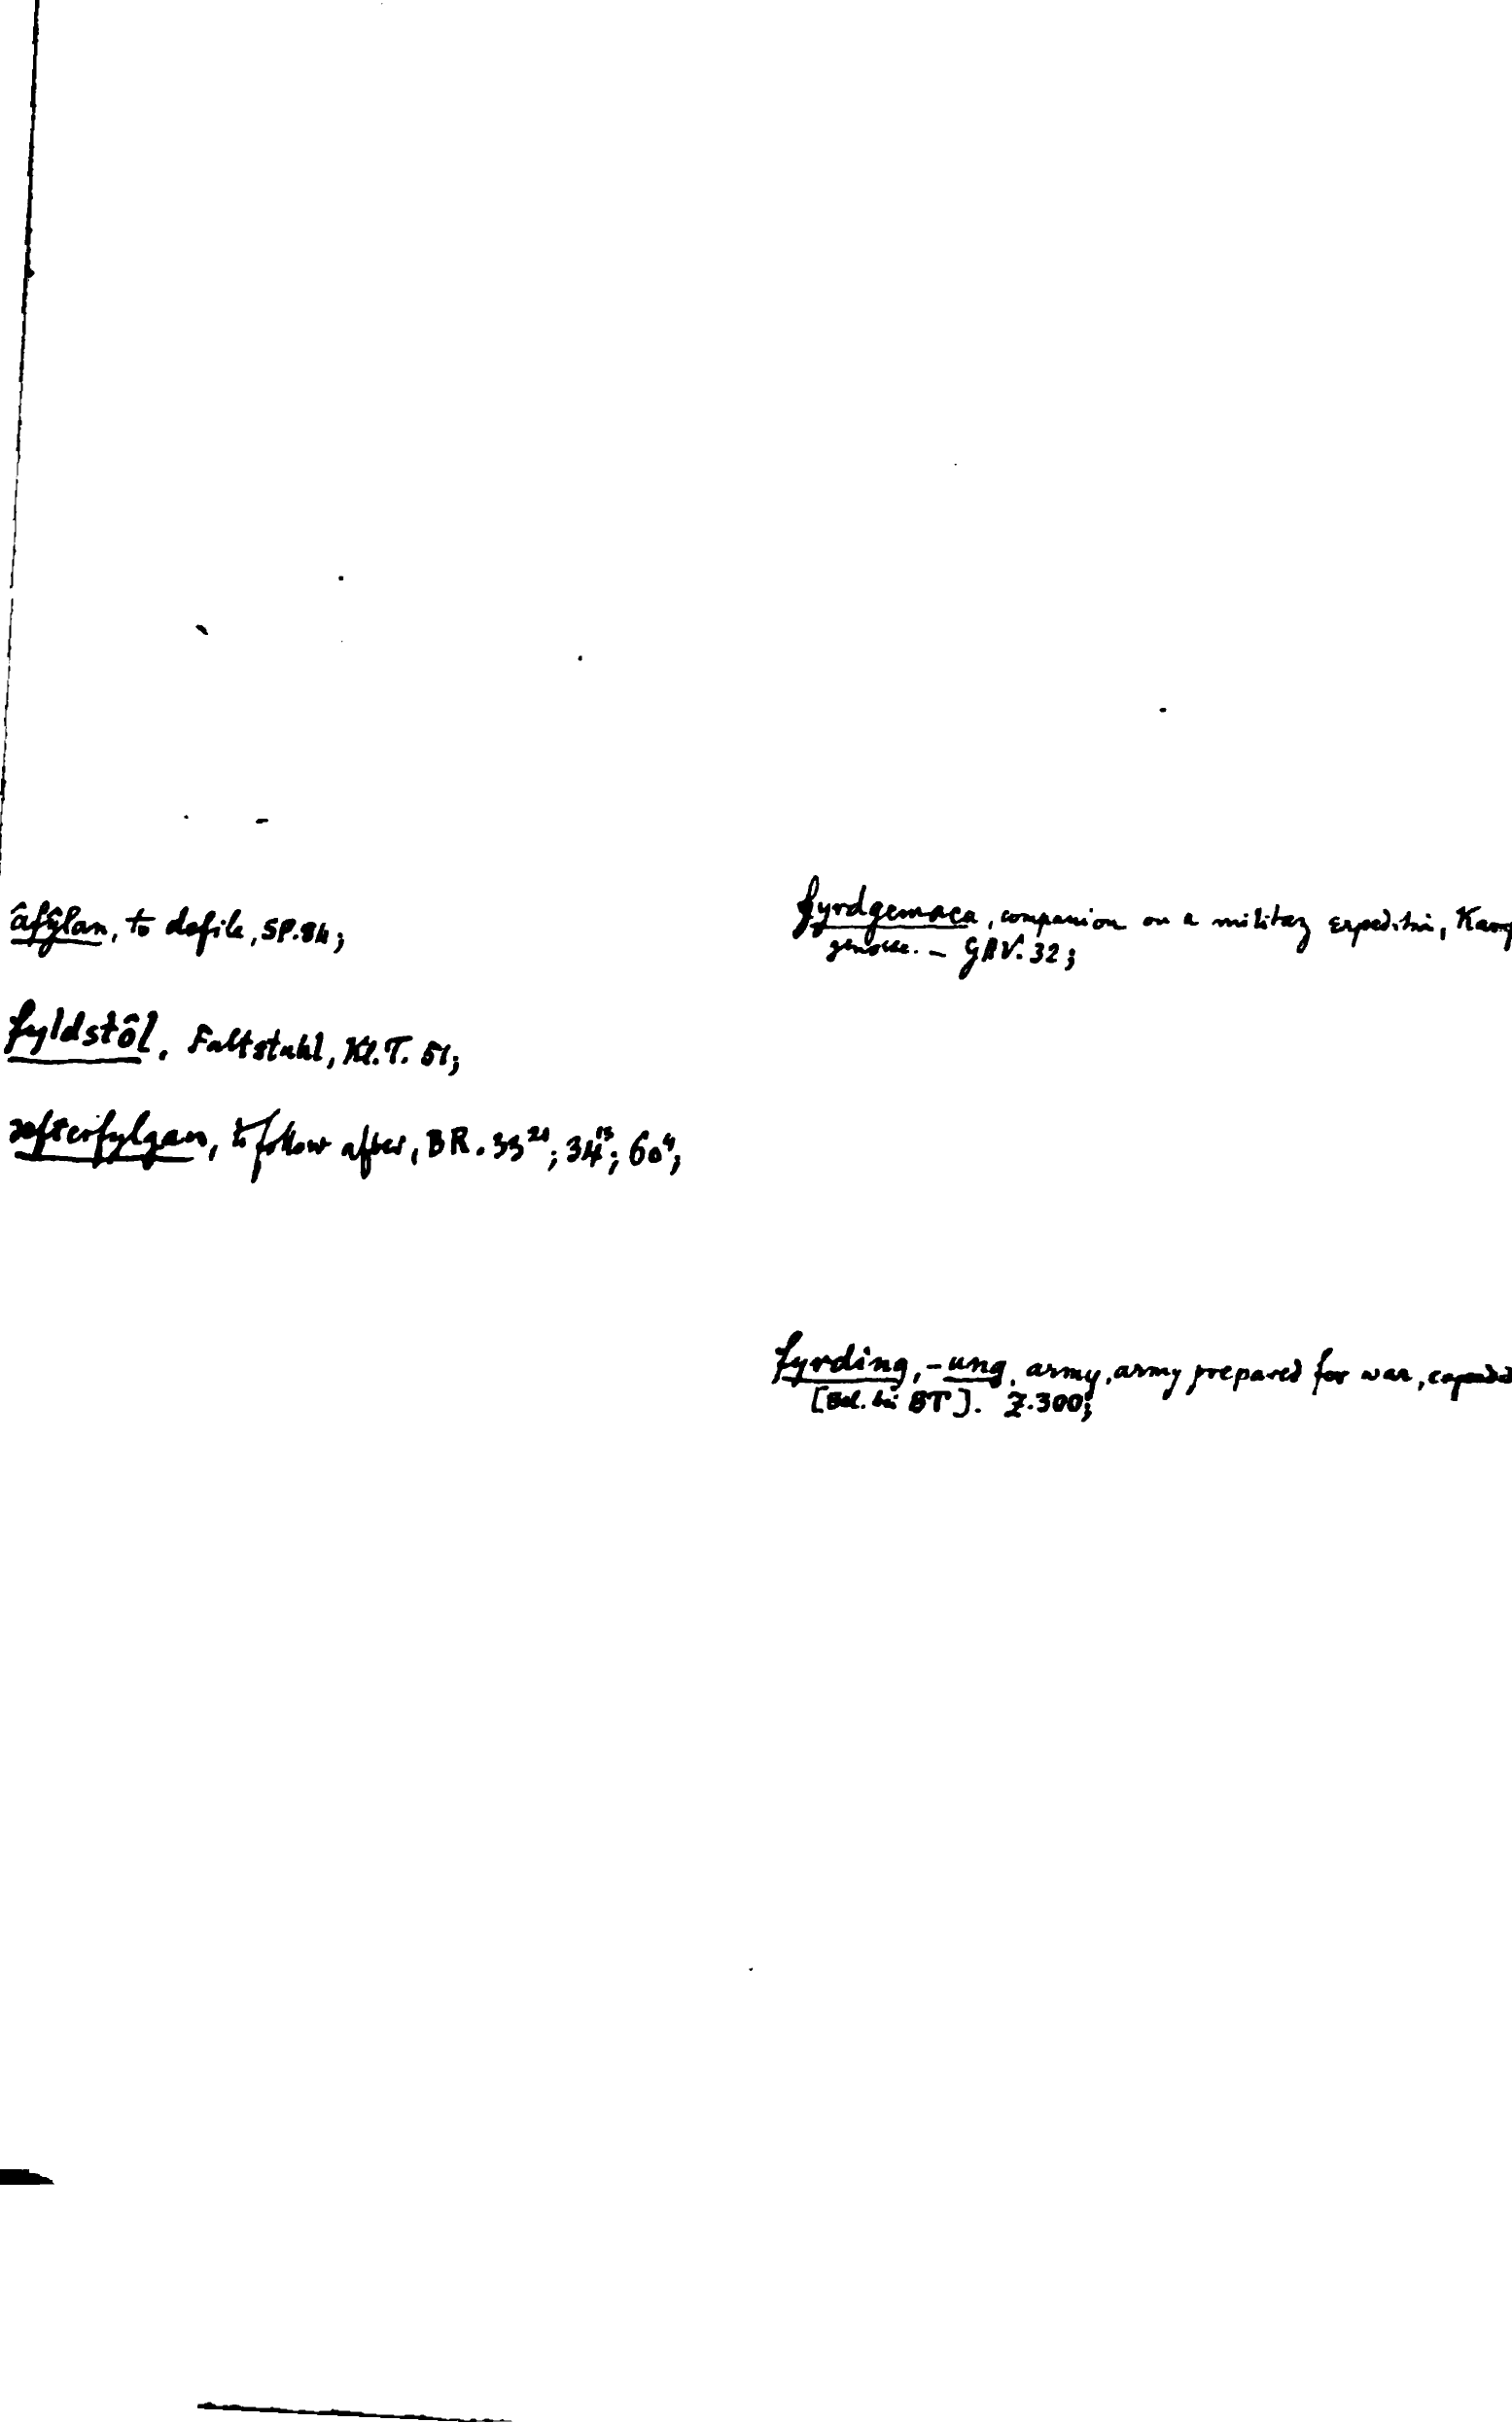 âfŷlan, to defile, SP. 84;
fyldstôl, Faltstuhl, Kl. T. 51;
æfterfylgan, to follow after, BR. 33²¹; 34¹³; 60⁴;
fyrdgemaca, companion on a military expedition,
genosse. – GAV. 32;
fyrding, -ung, army, army prepared for war,
[Bel. bei BT]. Z. 300;